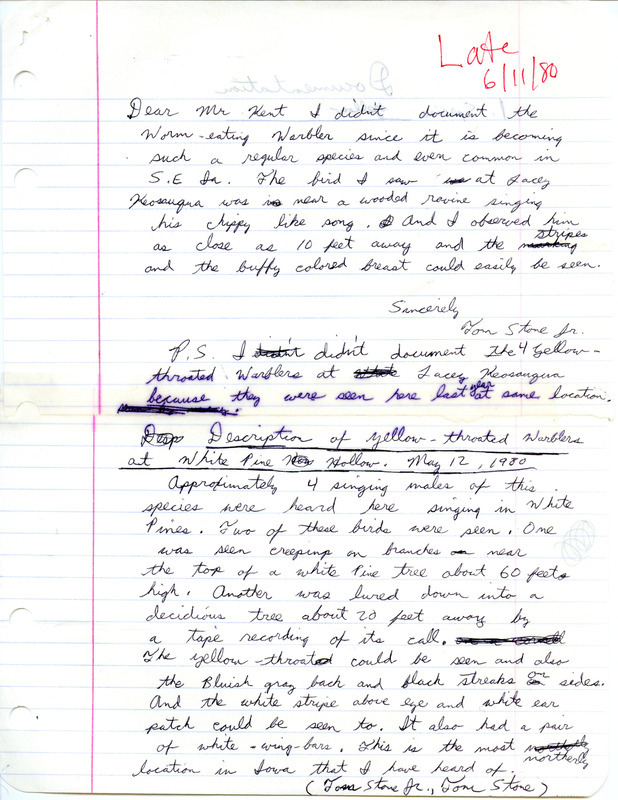 Late
6/11/80
Dear Mr. Kent I didn't document the
Worm-eating Warbler since it is becoming
such a regular species and even common in
S.E Ia. The bird I saw at Lacey
Keosauqua was near a wooded ravine singing
his chippy like song. And I observed him
as close as 10 feet away and the stripes
and the buffy colored breast could easily be seen.
Sincerely
Tom Stone Jr.
P.S. I didn't document the 4 Yellow-
throated Warblers at Lacey Keosauqua
because they were seen here last year at same location.
Description of yellow-throated Warblers
at White Pine Hollow. May 12, 1980
Approximately 4 singing males of this
species were heard here singing in White
Pines. Two of these birds were seen. One
was seen creeping on branches near
the top of a white Pine tree about 60 feet
high. Another was lured down into a
decidious tree about 20 feet away by
a tape recording of its call.
The yellow-throat could be seen and also
the Bluish gray back and black streaks on sides.
And the white stripe above eye and white ear
patch could be seen to. It also had a pair
of white-wing-bars. This is the most northerly
location in Iowa that I have heard of.
(Tom Stone Jr., Tom Stone)